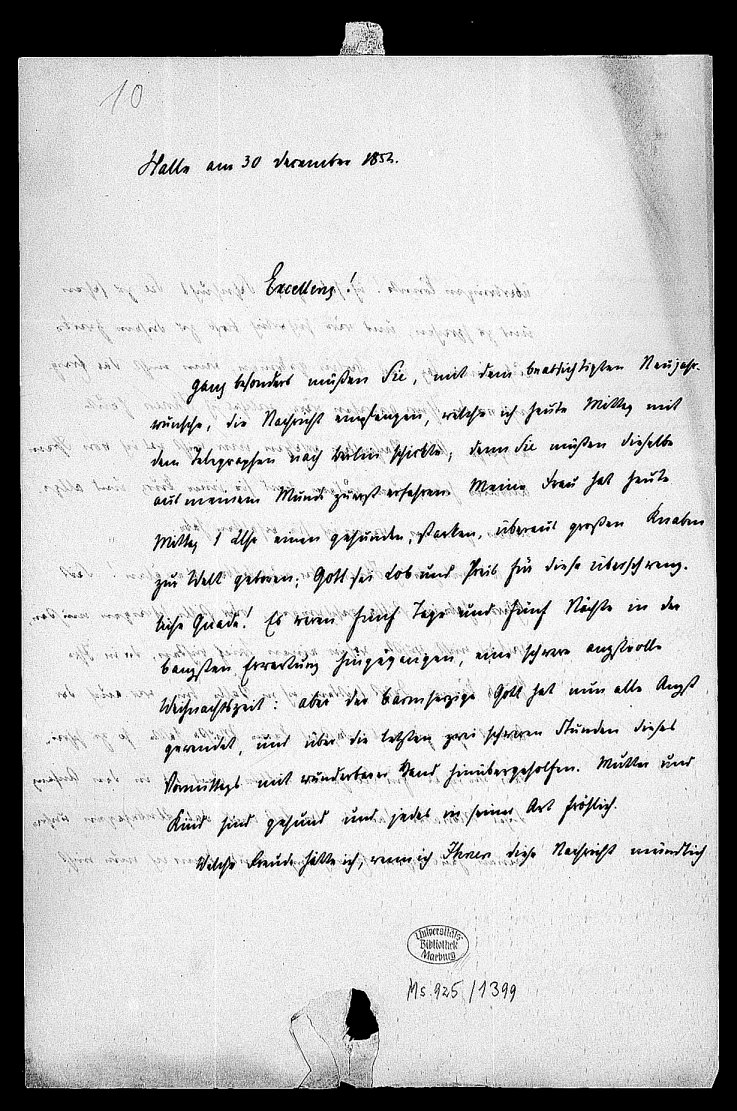 10
Halle am 30 December 1852.
Excellenz!
Ganz besonders müßen Sie, mit dem beabsichtigten Neujahr-
wunsche, die Nachricht empfangen, welche ich heute Mittag mit
dem Telegraphen nach Berlin schickte; denn Sie müßen dieselbe
aus meinem Mund zuerst erfahren. Meine Frau hat heute
Mittag 1 Uhr einen gesunden, starken, überaus großen Knaben
zur Welt geboren; Gott sei Lob und Preis für diese überschweng-
liche Gnade! Es waren fünf Tage und fünf Nächte in der
bangsten Erwartung hingegangen, eine schwere angstvolle
Weihnachtszeit: aber der barmherzige Gott hat nun alle Angst
gewendet, und über die letzten zwei schweren Stunden dieses
Vormittags mit wunderbarer Hand hinübergeholfen. Mutter und
Kind sind gesund und jedes in seiner Art fröhlich.
Welche Freude hätte ich, wenn ich Ihnen diese Nachricht mündlich
Universitäts-
Bibliothek
Marburg
Ms. 925/1399